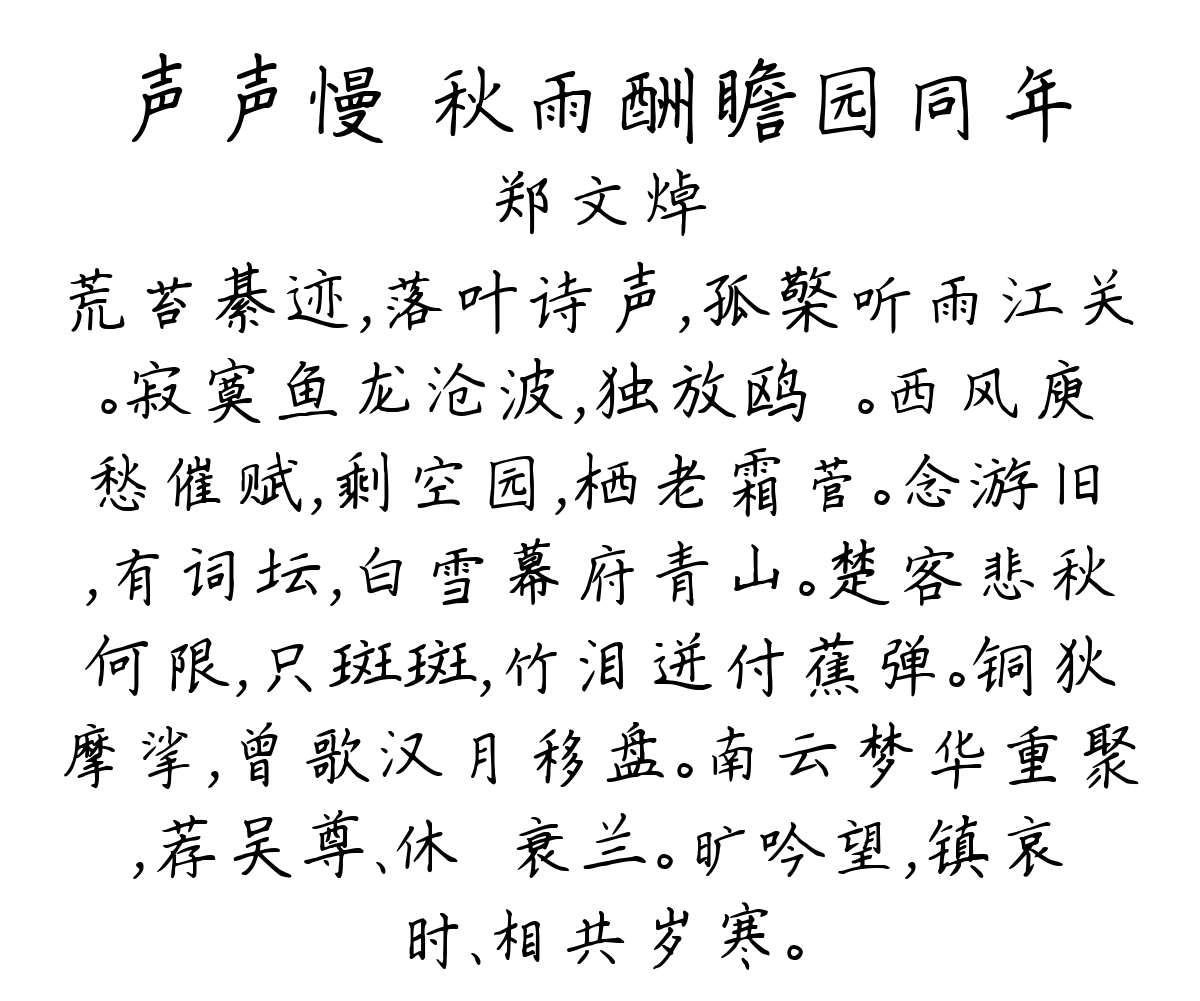 声声慢 秋雨酬瞻园同年
郑文焯
荒苔綦迹,落叶诗声,孤檠听雨江关
。寂寞鱼龙沧波,独放鸥 。西风庾
愁催赋,剩空园,栖老霜菅。念游旧
,有词坛,白雪幕府青山。楚客悲秋
何限,只斑斑,竹泪迸付蕉弹。铜狄
摩挲,曾歌汉月移盘。南云梦华重聚
,荐吴尊、休 衰兰。旷吟望,镇哀
时、相共岁寒。